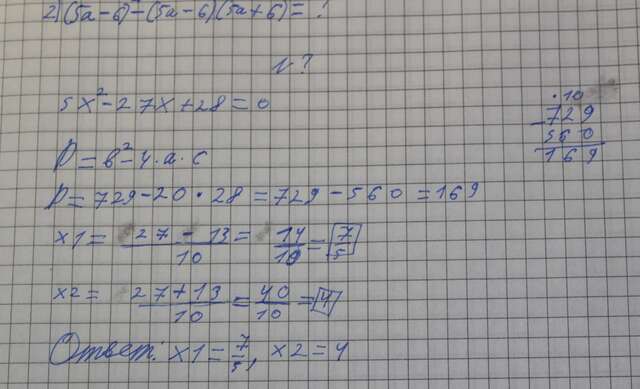 2) (5a-6)²-(5a-6)(5a+6)= ?
N?
5x²-27x+28=0
D=b²-4·a·c
D=729-20·28=729-560=169
x1= 27-13/10 = 14/10 = 7/5
x2= 27+13/10 = 40/10 = 4
Ответ: x1=7/5, x2=4
·10
729
- 560
169